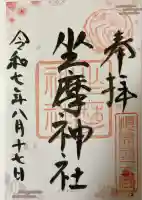 奉拝
坐摩神社
令和七年八月十七日